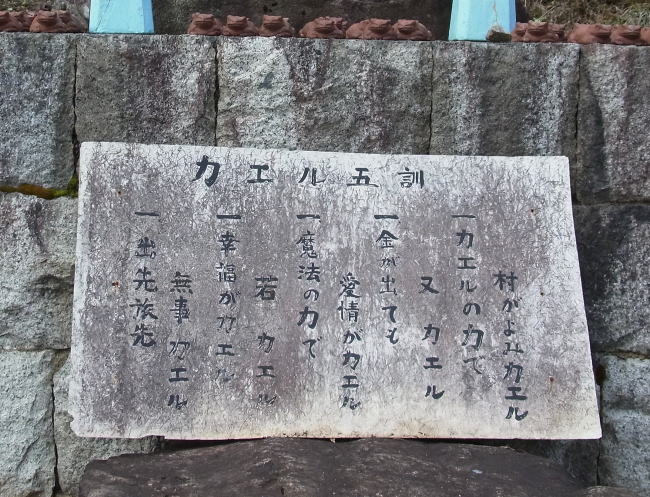 カエル五訓
一出先旅先
無事カエル
一幸福がカエル
若カエル
一魔法の力で
愛情がカエル
一金が出ても
又カエル
一カエルの力で
村がよみカエル